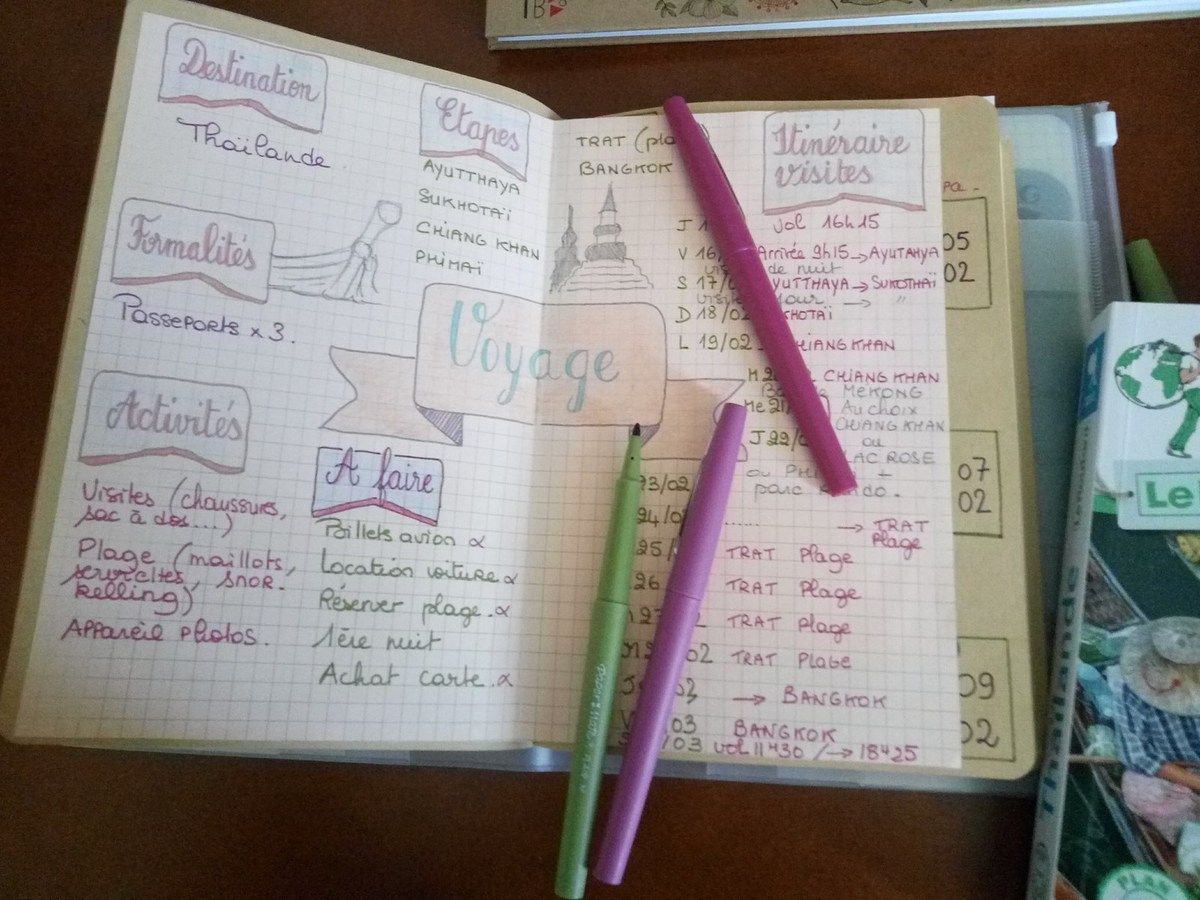 Destination
Thaïlande
Formalités
Passeports x 3.
Activités
Visites (chaussures,
sac à dos...)
Plage (maillots,
serviettes, snor-
kelling)
Appareil photos.
Etapes
AYUTTHAYA
SUKHOTAÏ
CHIANG KHAN
PHIMAÏ
Voyage
A faire
Billets avion α
Location voiture α
Réserver plage. α
1ère nuit
Achat carte. α
TRAT (pla
BANGKOK
Itinéraire
visites
J 1 vol 16h15
V 16/ Arrivée 9h15 → AYUTAHYA
de nuit
S 17/0 AYUTTHAYA → SUKOTHAÏ
→ "
D 18/02 KHOTAÏ
L 19/02 CHIANG KHAN
M 2 CHIANG KHAN
MEKONG
Me 21 Au choix
CHIANG KHAN
J 22/0 ou
LAC ROSE
ou PH +
parc
23/02
24/0 ...... → TRAT
Plage
25/ TRAT Plage
26 TRAT Plage
27 TRAT Plage
02 TRAT Plage
J 03 → BANGKOK
V /03 BANGKOK
/03 vol 11H30 /→ 18H25
05
02
07
02
09
02
Le
Thaïlande
PLAN